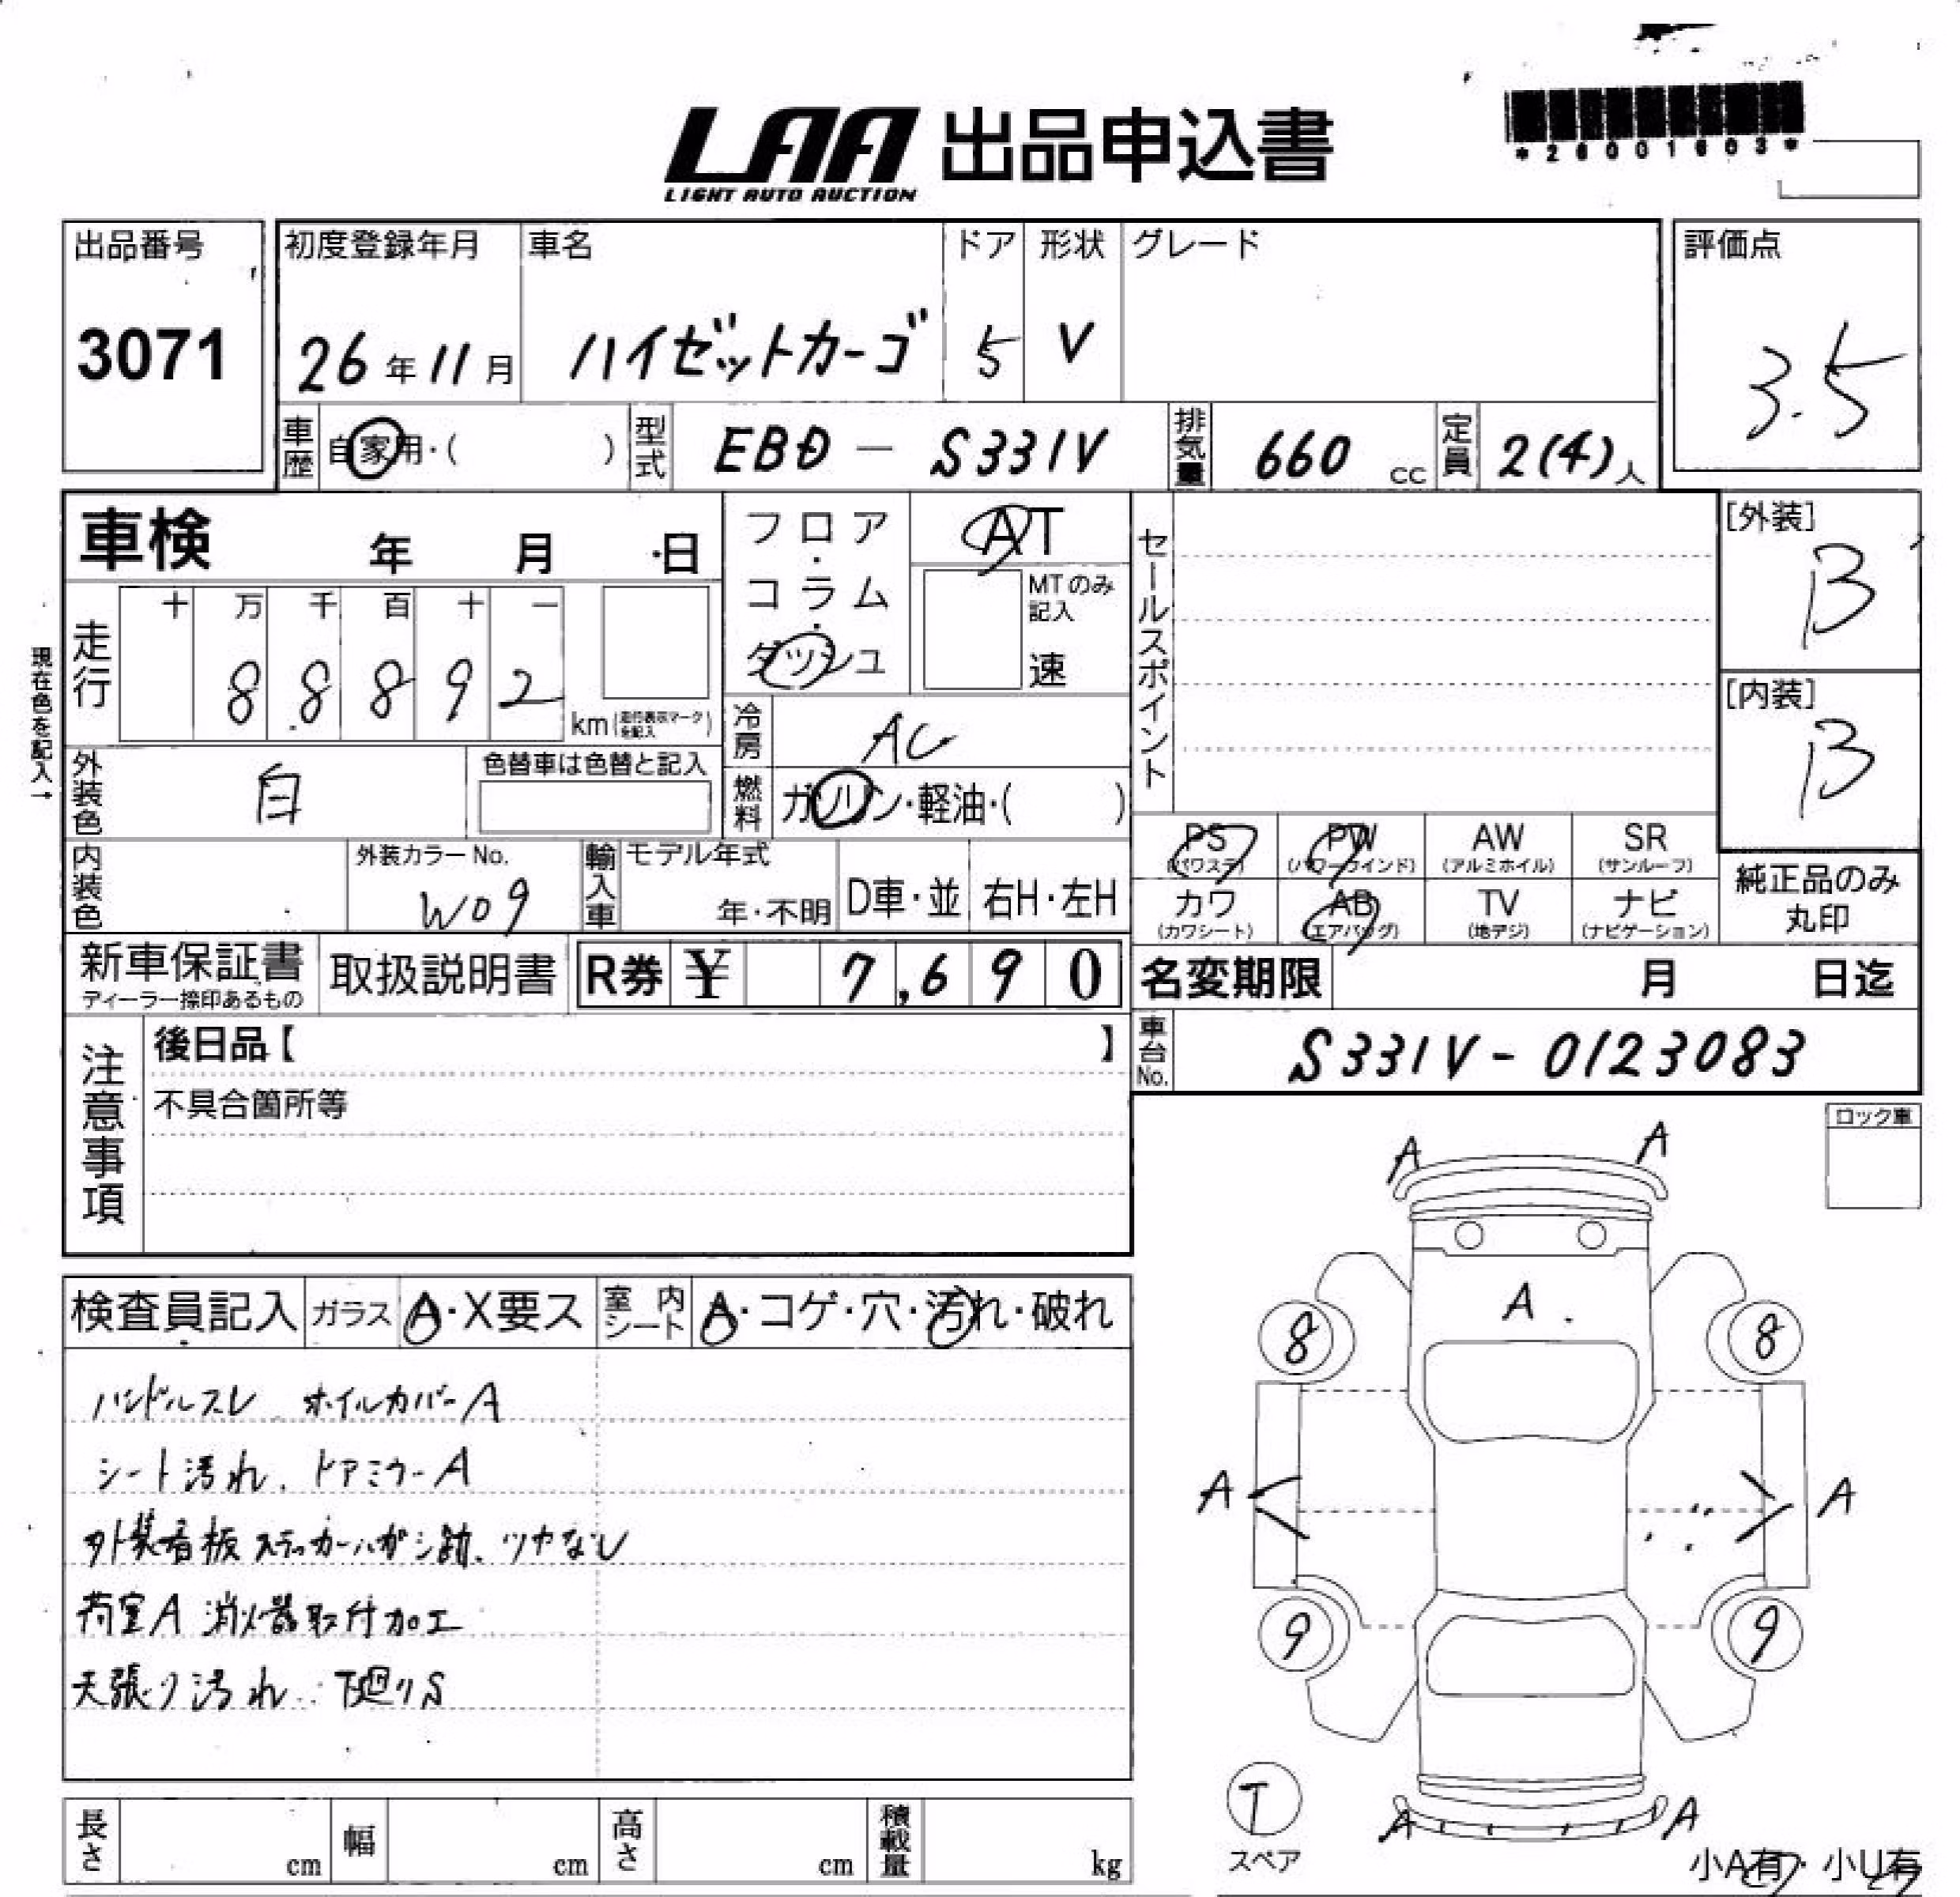 LAA 出品申込書
LIGHT AUTO AUCTION
*26001603*
出品番号
3071
初度登録年月
26年11月
車名
ハイゼットカーゴ
ドア
5
形状
V
グレード
評価点
3.5
車歴
自家用・( )
型式
EBD - S331V
排気量
660 cc
定員
2(4)人
車検 年 月 日
現在色を記入→
走行
十 万 千 百 十 一
8 8 8 9 2
km(走行表示マークを記入)
フロア・コラム・ダッシュ
AT
MTのみ記入
速
冷房
AC
燃料
ガソリン・軽油・( )
外装色
白
色替車は色替と記入
内装色
外装カラーNo.
W09
輸入車
モデル年式
年・不明
D車・並
右H・左H
セールスポイント
[外装]
B
[内装]
B
PS
(パワステ)
PW
(パワーウインド)
AW
(アルミホイル)
SR
(サンルーフ)
カワ
(カワシート)
AB
(エアバッグ)
TV
(地デジ)
ナビ
(ナビゲーション)
純正品のみ
丸印
新車保証書
ディーラー捺印あるもの
取扱説明書
R券 ¥ 7,690
名変期限 月 日迄
車台No.
S331V-0123083
注意事項
後日品【 】
不具合箇所等
ロック車
検査員記入
ガラス
A・X要ス
室内シート
A・コゲ・穴・汚れ・破れ
ハンドルスレ ホイルカバーA
シート汚れ、ドアミラーA
外装看板ステッカーハガシ跡、ツヤなし
荷室A 消火器取付加工
天張り汚れ 下廻りS
A A
A
8 8
A A
9 9
T
スペア
A A
小A有・小U有
長さ cm
幅 cm
高さ cm
積載量 kg